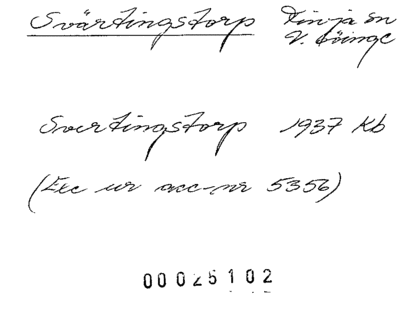 Svärtingstorp Finja sn
V. Göinge
Svertingstorp 1937 Kb
(Exc ur acc-nr 5356)
00025102